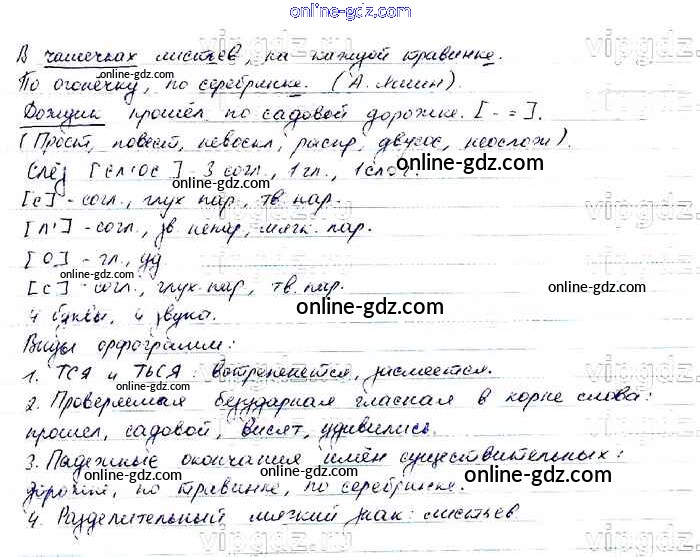 online-gdz.com
В чашечках листьев, на каждой травинке.
По огонёчку, по серебринке. (А. Яшин).
online-gdz.com online-gdz.com
Дождик прошёл по садовой дорожке. [- =].
(Прост, повест, невоскл, распр, двусос, неослож).
Слёз [сл'ос] - 3 согл., 1 гл., 1 слог.
online-gdz.com online-gdz.com
[с] - согл., глух. пар., тв. пар.
vipgdz.ru vipgdz.ru
[л'] - согл., зв. непар, мягк. пар.
[о] - гл., уд
online-gdz.com
[с] - согл., глух. пар, тв. пар.
online-gdz.com online-gdz.com
4 буквы, 4 звука.
Виды орфограмм:
1. ТСЯ и ТЬСЯ: встрепенется, засмеется.
online-gdz.com online-gdz.com
2. Проверяемая безударная гласная в корне слова:
прошел, садовой, висят, удивились.
online-gdz.com
3. Падежные окончания имён существительных:
online-gdz.com online-gdz.com
дорожке, по травинке, по серебринке.
4. Разделительный мягкий знак: листьев
vipgdz.ru vipgdz.ru